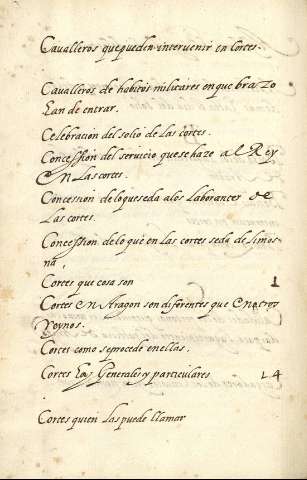 Cavalleros que pueden intervenir en Cortes.
Cavalleros de habitos militares en que brazo
han de entrar.
Celebracion del solio de las cortes.
Concession del servicio que se haze al Rey
en Las cortes.
Concession de lo que se da a los Laborantes de
Las cortes.
Concession de lo que en las cortes se da de limos
na.
Cortes que cosa son 1
Cortes en Aragon son diferentes que en otros
Reynos.
Cortes como se procede en ellas.
Cortes hay Generales y particulares L4
Cortes quien las puede llamar